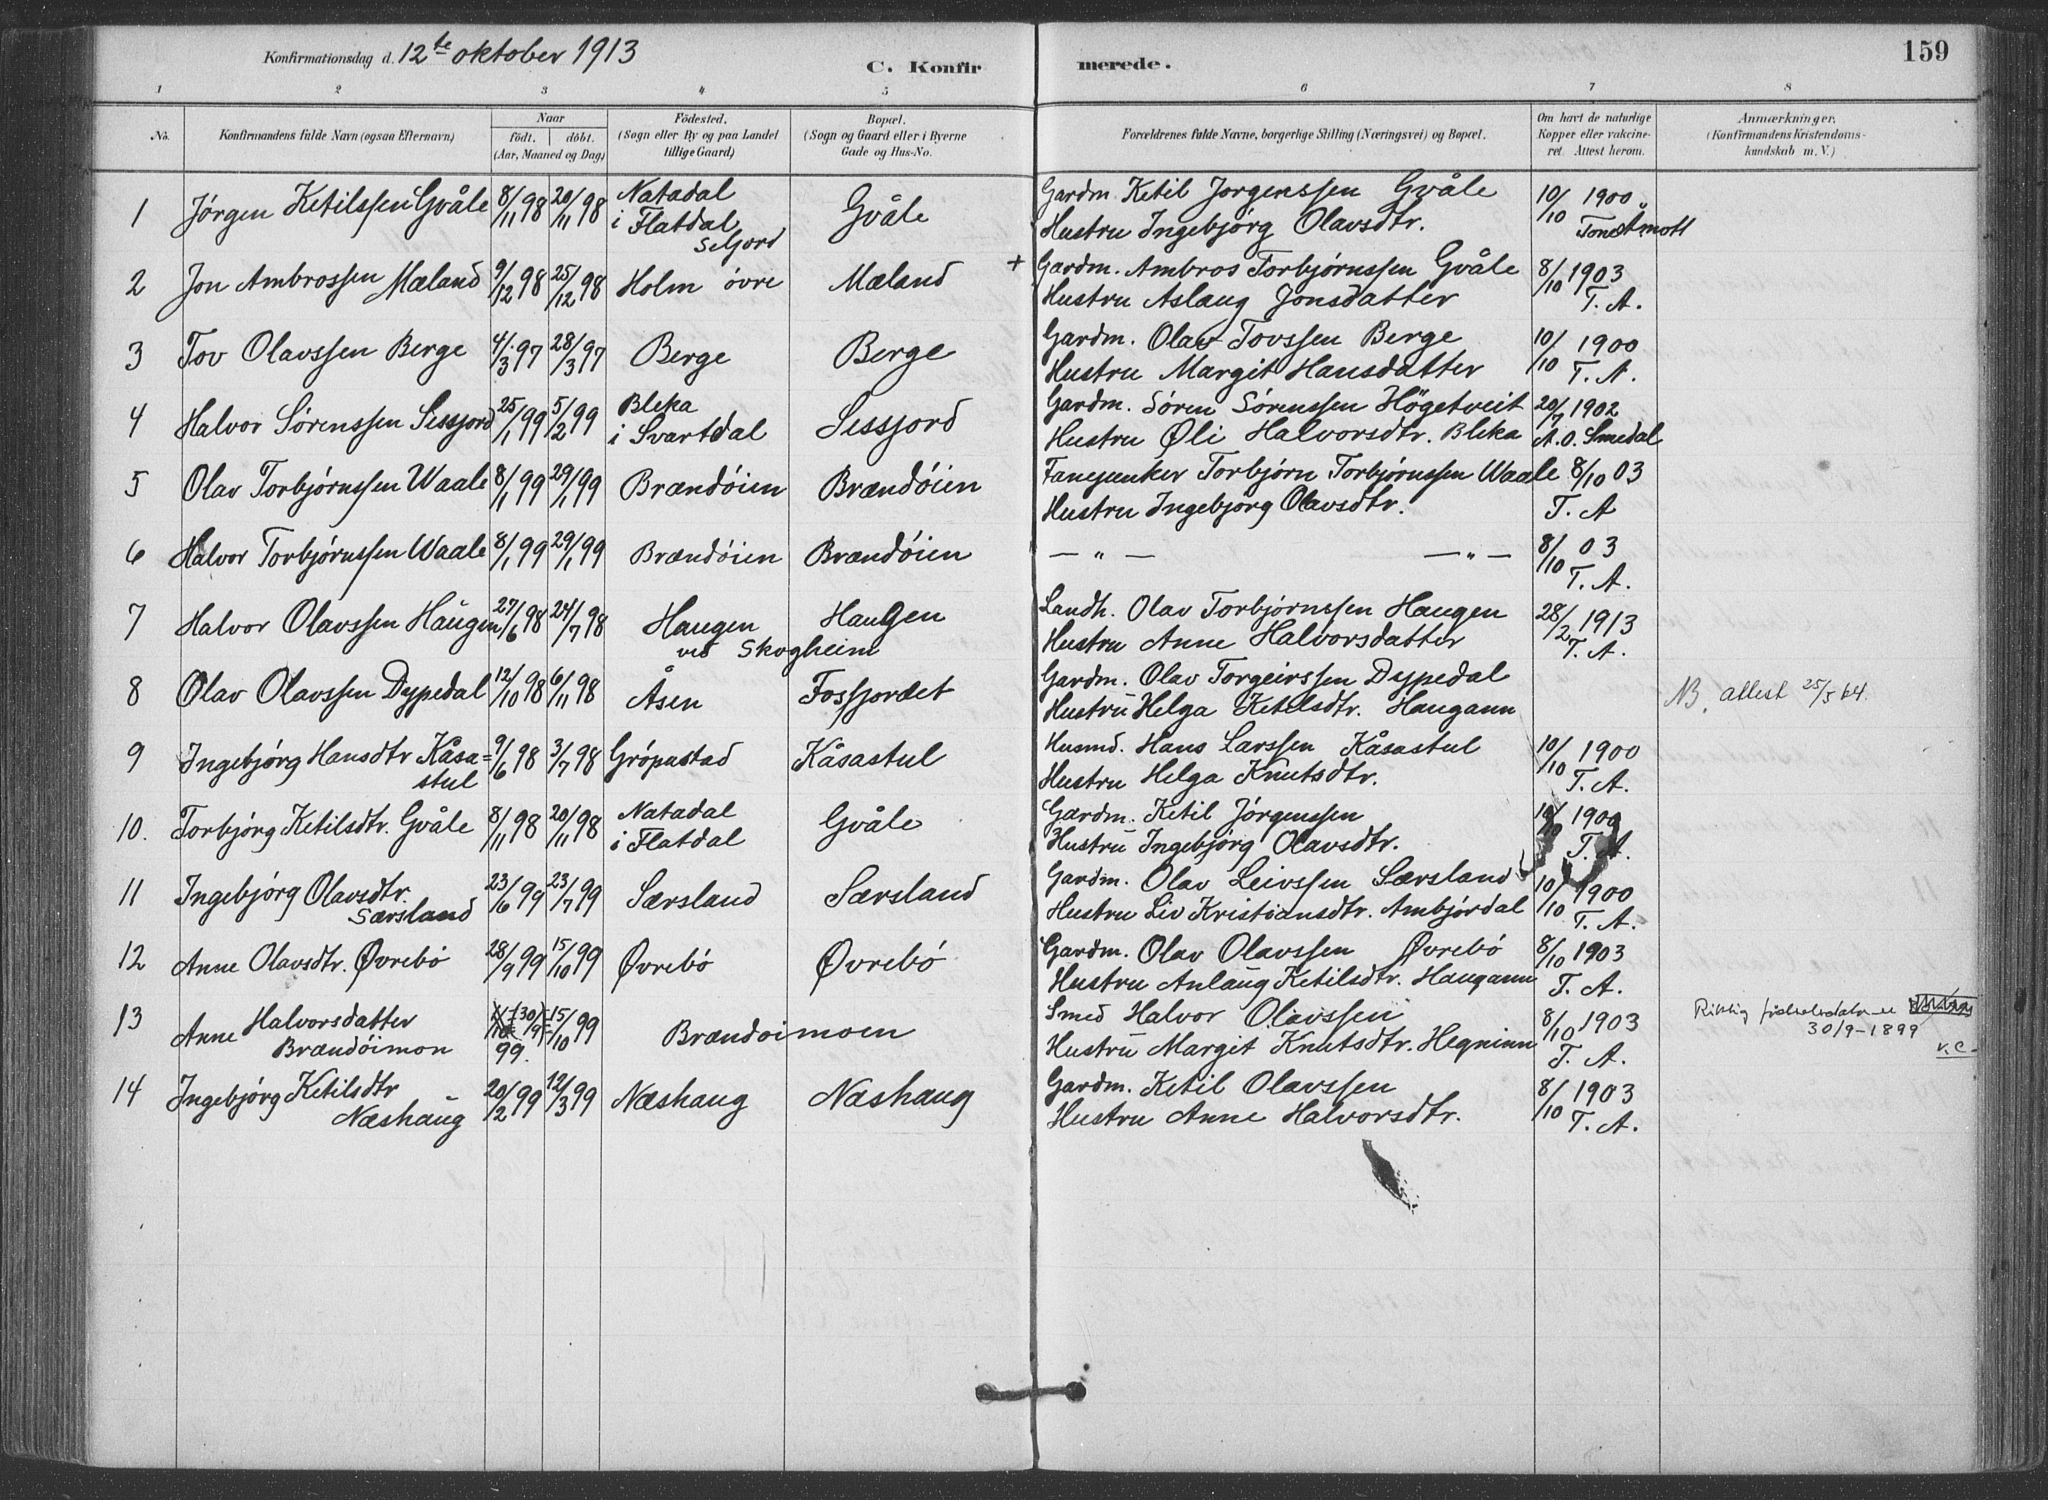 Konfirmationsdag d. 12te oktober 1913
C. Konfirmerede.
159
1 2 3 4 5 6 7 8
No.
Konfirmandens fulde Navn (ogsaa Efternavn)
Naar
födt. döbt.
(Aar, Maaned og Dag)
Födested.
(Sogn eller By og paa Landet
tillige Gaard)
Bopæl.
(Sogn og Gaard eller i Byerne
Gade og Hus-No.
Forældrenes fulde Navne, borgerlige Stilling (Næringsvei) og Bopæl.
Om havt de naturlige
Kopper eller vakcine-
ret. Attest herom.
Anmærkninger.
(Konfirmandens Kristendoms-
kundskab m. V.)
1 Jørgen Ketilssen Gvåle 8/11 98 20/11 98 Natadal
i Flatdal
Seljord
Gvåle
Gardm. Ketil Jørgenssen Gvåle
Hustru Ingebjørg Olavsdtr.
10/10 1900
Tone Åmott
2 Jon Ambrossen Mæland 9/12 98 25/12 98 Holm övre Mæland
+ Gardm. Ambros Torbjørnssen Gvåle
Hustru Aslaug Jonsdatter
8/10 1903
T. A.
3 Tov Olavssen Berge 4/3 97 28/3 97 Berge Berge
Gardm. Olav Tovssen Berge
Hustru Margit Hansdatter
10/10 1900
T. A.
4 Halvor Sørenssen Sessjord 25/1 99 5/2 99 Bleka
i Svartdal
Sessjord
Gardm. Søren Sørenssen Högetveit
Hustru Øli Halvorsdtr. Bleka
20/7 1902
A. O. Smedal
5 Olav Torbjørnssen Waale 8/1 99 29/1 99 Brændöien Brændöien
Fanejunker Torbjørn Torbjørnssen Waale
Hustru Ingebjørg Olavsdtr.
8/10 03
T. A
6 Halvor Torbjørnssen Waale 8/1 99 29/1 99 Brændöien Brændöien
— „ — — „ —
8/10 03
T. A.
7 Halvor Olavssen Haugen 27/6 98 24/7 98 Haugen
ved Skogheim
Haugen
Landh. Olav Torbjørnssen Haugen
Hustru Anne Halvorsdatter
28/2 1913
T. A.
8 Olav Olavssen Dypedal 12/10 98 6/11 98 Åsen Fossjordet
Gardm. Olav Torgeirssen Dypedal
Hustru Helga Ketilsdtr. Haugann
NB, attest 25/5 64.
9 Ingebjørg Hansdtr Kåsa=
stul
9/6 98 3/7 98 Gröpastad Kåsastul
Husmd. Hans Larssen Kåsastul
Hustru Helga Knutsdtr.
10/10 1900
T. A.
10. Torbjørg Ketilsdtr. Gvåle 8/11 98 20/11 98 Natadal
i Flatdal
Gvåle
Gardm. Ketil Jörgenssen
Hustru Ingebjørg Olavsdtr.
10/10 1900
T. A.
11 Ingebjørg Olavsdtr.
Særsland
23/6 99 23/7 99 Særsland Særsland
Gardm. Olav Leivssen Særsland
Hustru Liv Kristiansdtr. Ambjördal
10/10 1900
T. A.
12 Anne Olavsdtr. Øvrebö 28/9 99 15/10 99 Øvrebö Øvrebö
Gardm. Olav Olavssen Øvrebö
Hustru Anlaug Ketilsdtr. Haugann
8/10 1903
T. A.
13 Anne Halvorsdatter
Brændöimon
(30/9)
99.
15/10 99 Brændöimoen
Smed Halvor Olavssen
Hustru Margit Knutsdtr. Hegninn
8/10 1903
T. A.
Riktig fødselsdato er
30/9-1899
v. C.
14 Ingebjørg Ketilsdtr
Næshaug
20/2 99 12/3 99 Næshaug Næshaug
Gardm. Ketil Olavssen
Hustru Anne Halvorsdtr.
8/10 1903
T. A.